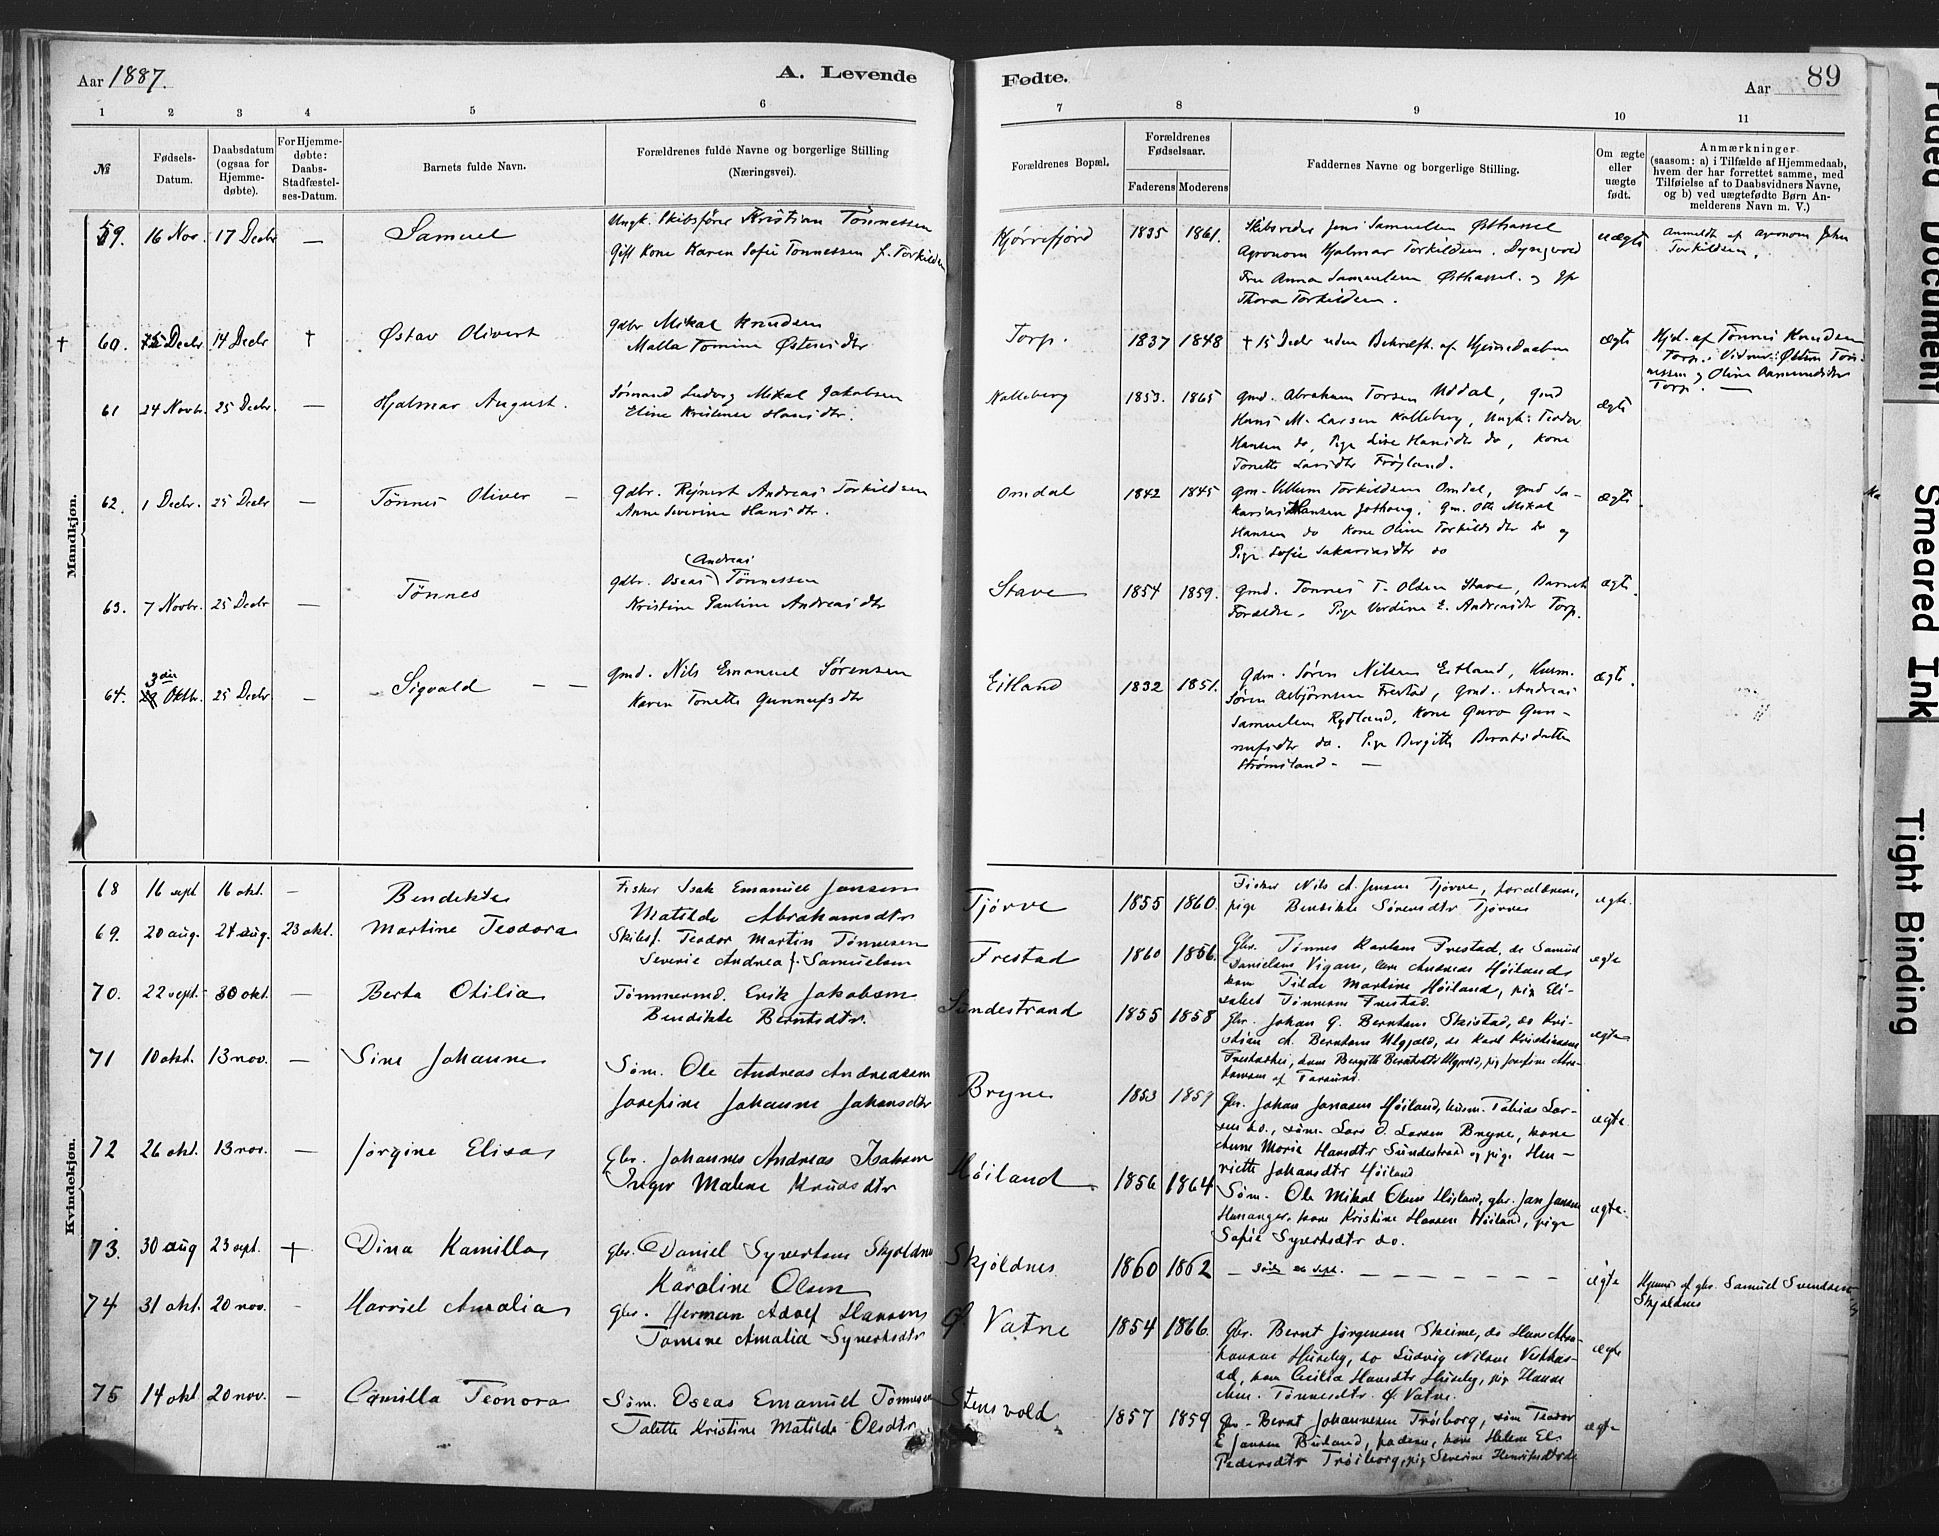 Aar 1887. A. Levende Fødte. Aar 89
1 2 3 4 5 6 7 8 9 10 11
№ Fødsels-Datum. Daabsdatum (ogsaa for Hjemme-døbte). For Hjemme-døbte: Daabs-Stadfæstel-ses-Datum. Barnets fulde Navn. Forældrenes fulde Navne og borgerlige Stilling (Næringsvei). Forældrenes Bopæl. Forældrenes Fødselsaar. Faderens Moderens Faddernes Navne og borgerlige Stilling. Om ægte eller uægte født. Anmærkninger (saasom: a) i Tilfælde af Hjemmedaab, hvem der har forrettet samme, med Tilføielse af to Daabsvidners Navne, og b) ved uægtefødte Børn An-melderens Navn m. V.)
Mandkjøn.
59. 16 Nov. 17 Decbr — Samuel
Ungk. Skibsfører Kristian Tönnessen
Gift Kone Karen Sofie Tonnessen f. Torkildsen
Kjørrefjord 1835 1861.
Skibsreder Jens Samuelsen Østhassel
Agronom Hjalmar Torkildsen. Dyngvold
Fru Anna Samuelsen Østhassel. og
Thora Torkildsen.
uægte
Anmeldt af agronom John
Torkildsen.
† 60. 5 Decbr 14 Decbr † Østav Olivert
Gdbr Mikal Knudsen
Malla Tomine Østensdtr
Torp. 1837 1848
† 15 Decbr uden Bekræft. af Hjemmedaaben
ægte
Hjd. af Tønnes Knudsen
Torp. Vidner: Østen Tøn-
nessen og Oline Aanensdtr
Torp. —
61 24 Novbr. 25 Decbr — Hjalmar August.
Sömand Ludvig Mikal Jakobsen
Eline Kristense Hansdtr.
Kalleberg 1853. 1865
gmd. Abraham Torsen Uddal, gmd
Hans M. Larsen Kalleberg, Ungk: Teodor
Hansen do, Pige Live Hansdtr do, Kone
Tonette Larsdtr Frøjland.
ægte
62. 1 Decbr. 25 Decbr — Tönnes Oliver —
Gdbr. Rejnert Andreas Torkildsen
Anne Severine Hansdtr.
Omdal 1842 1845
gm. Villum Torkildsen Omdal, gmd Sa-
karias Hansen Gm. Otto Mikal
Hansen do Kone Oline Torkildsdtr do og
Pige Sofie Sakariasdtr do
ægte
63. 7 Novbr. 25 Decbr — Tönnes
Andreas
gdbr. Oseas Tönnessen
Kristine Pauline Andreasdtr
Stave 1854 1859.
gmd. Tonnes T. Olsen Stave, Barnets
Forældre, Pige Verdine E. Andreasdtr Torp.
ægte.
3die
64. Oktbr. 25 Decbr — Sigvald — —
gmd. Nils Emanuel Sørensen
Karen Tonette Gunnufsdtr
Eitland 1832 1851.
Gdm. Søren Nilsen Eitland, Husm.
Søren Asbjørnsen Frestad, gmd. Andreas
Samuelsen Rydland, Kone Guro Gun-
nufsdtr do. Pige Bergitte Berntsdatter
Strömsland. —
ægte.
Kvindekjøn.
68 16 sept 16 okt. — Bendikte
Fisker Isak Emanuel Jansen
Matilde Abrahamsdtr
Tjörve 1855 1860.
Fisker Nils A. Jensen Tjörve, forældrene,
pige Bendikte Sörensdtr Tjörve
ægte.
69. 20 aug. 24 aug. 23 okt. Martine Teodora
Skibsf. Teodor Martin Tönnesen
Severie Andrea f. Samuelsen
Frestad 1860 1856.
Gbr. Tönnes Karlsen Frestad, do Samuel
Danielsen Vigan, Andreas Höiland,
kone Tilde Martine Höiland, pig Eli-
sabet Tönnesen Frestad.
ægte
70. 22 sept. 30 okt. — Berta Otilia
Tömmermd. Erik Jakobsen
Bendikte Berntsdtr.
Sundestrand 1855 1858
Gbr. Johan G. Berntsen Skeistad, do Kri-
stian A. Berntsen Ulgjæld, do Karl Kristiansen
kone Bergitte Berntsdtr pig Josefine Abra-
hamsen af Farsund.
ægte
71 10 okt. 13 nov. — Sine Johanne
Söm. Ole Andreas Andreassen
Josefine Johanne Johansdtr
Bryne 1853 1859
Gbr. Johan Janasen Höiland, husm. Tobias Lar-
sen do., söm. Lars O. Larsen Bryne, kone
Anne Marie Hansdtr Sundestrand og pige Hen-
riette Johansdtr Höiland
ægte.
72 26 okt. 13 nov. — Jörgine Elisa
Gbr. Johannes Andreas Isaksen
Inger Malene Knudsdtr
Höiland 1856 1864
Söm. Ole Mikal Olsen Höiland, gbr. Jan Jansen
Hananger, kone Kristine Hansen Höiland, pige
Sofie Syvertsdtr do.
ægte.
73. 30 aug 23 sept. + Dina Kamilla
gbr. Daniel Syvertsen Skjoldnes
Karoline Olsen
Skjoldnes 1860 1862
— död 26 sept. — — — — — — —
ægte
Hjemmed. af gbr. Samuel Svendsen
Skjoldnes
74 31 okt. 20 nov. — Harriet Amalia
gbr. Herman Adolf Hansen
Tomine Amalia Syvertsdtr
Ø. Vatne 1854 1866.
Gbr. Bernt Jörgensen Skeime, do Hans Abra-
hamsen Huseby, do Ludvig Nilsen Vethas-
sel, kone Cecilia Hansdtr Huseby, pig Hanne
Tönnesdtr. Ø. Vatne.
ægte
75 14 okt 20 nov. — Camilla Teonora
Söm. Oseas Emanuel Tönnesen
Talette Kristine Matilde Olsdtr
Stensvold 1857 1859
Gbr. Bernt Johannesen Tröiborg, söm Teodor
E Jansen Buland, faderen, kone Helene El.
Pedersdtr Tröiborg, pig Severine Henriksdtr do
ægte
Faded Document
Smeared Ink
Tight Binding